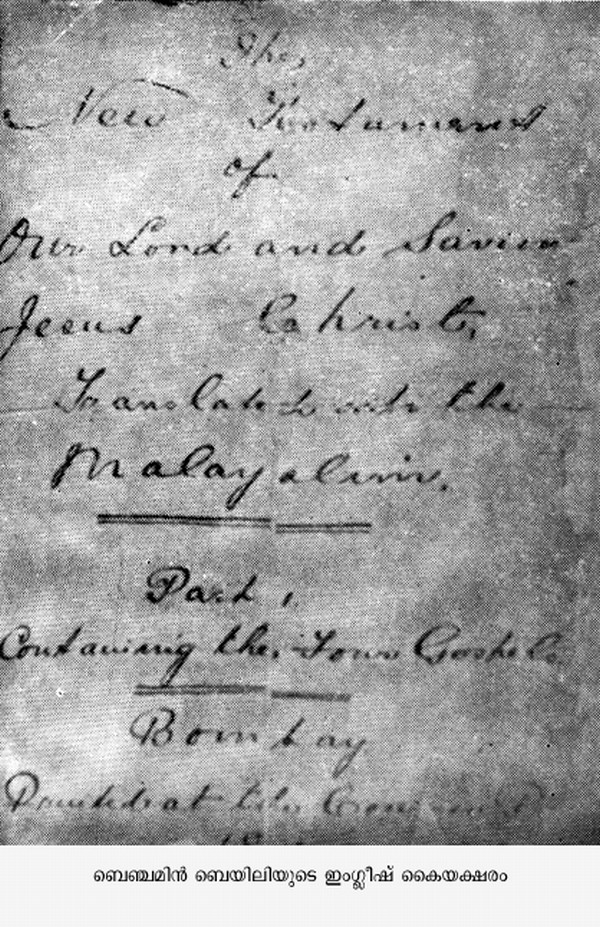 The
New Testament
of
Our Lord and Saviour
Jesus Christ,
Translated into the
Malayalim.
Part 1.
Containing the Four Gospels.
Bombay
Printed at the
ബെഞ്ചമിൻ ബെയിലിയുടെ ഇംഗ്ലീഷ് കൈയക്ഷരം